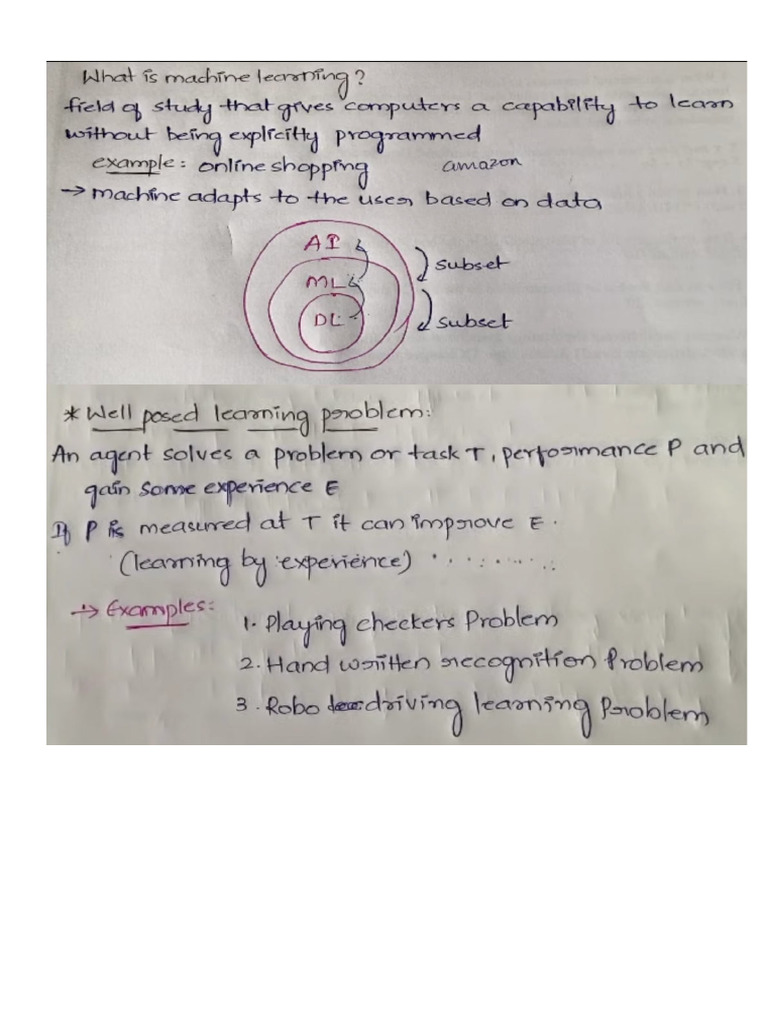 What is machine learning?
field of study that gives computers a capability to learn
without being explicitly programmed
example: online shopping amazon
→ machine adapts to the user based on data
AI
subset
ML
DL
subset
* Well posed learning problem:
An agent solves a problem or task T, performance P and
gain some experience E
If P is measured at T it can improve E.
(learning by experience)
→ Examples:
1. Playing checkers Problem
2. Hand written recognition Problem
3. Robo driving learning Problem